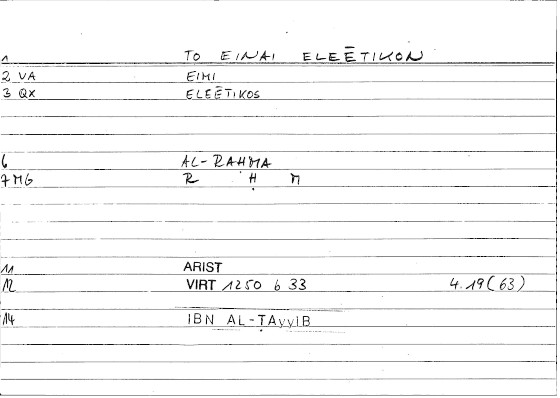 1 TO EINAI ELEĒTIKON
2 VA EIMI
3 QX ELEĒTIKOS
6 AL-RAḤMA
7 MG R Ḥ M
11 ARIST
12 VIRT 1250 b 33 4.19(63)
14 IBN AL-ṬAyyIB